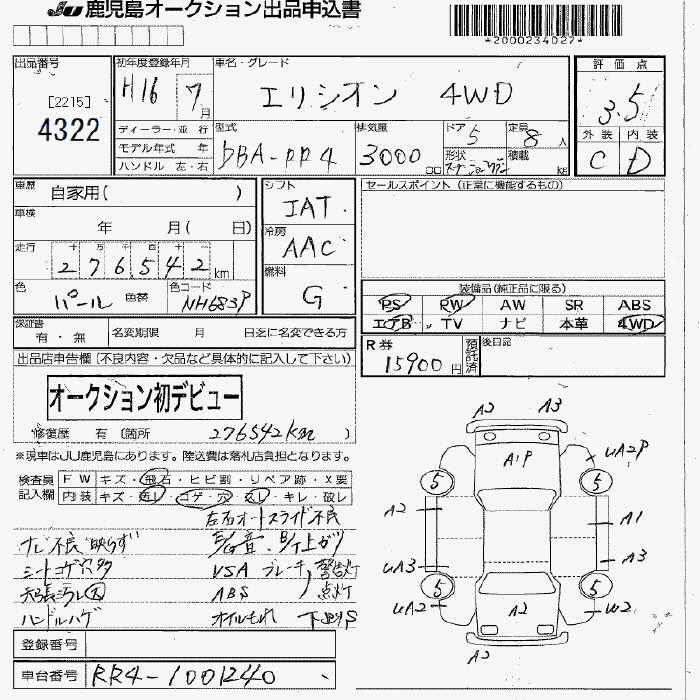 JU 鹿児島オークション出品申込書
*2000234027*
出品番号
[2215]
4322
初年度登録年月
H16 7月
車名・グレード
エリシオン 4WD
評価点
3.5
外装 内装
C D
ディーラー・並行
モデル年式 年
ハンドル 左・右
型式
DBA-RR4
排気量
3000 cc
ドア
5
定員
8人
形状
積載
kg
車歴
自家用( )
車検
年 月( 日)
走行
十 万 千 百 十 一
276542km
色
パール
色替
色コード
NH683P
シフト
IAT
冷房
AAC
燃料
G
セールスポイント(正常に機能するもの)
装備品(純正品に限る)
PS PW AW SR ABS
エアB TV ナビ 本革 4WD
保証書
有・無
名変期限 月 日迄に名変できる方
R券
15900円
預託済
後日品
出品店申告欄〔不良内容・欠品など具体的に記入して下さい〕
オークション初デビュー
修復歴 有〔箇所 276542km 〕
※現車はJU鹿児島にあります。陸送費は落札店負担となります。
検査員記入欄
FW キズ・飛石・ヒビ割・リペア跡・X要
内装 キズ・汚れ・コゲ・穴・スレ・キレ・破レ
左右オートスライド不良
ナビ不良 映らず
シートコゲ穴多
VSA ブレーキ 警告灯
天張汚レ大
ABS 点灯
ハンドルハゲ
オイルもれ 下回りS
登録番号
車台番号
RR4-1001240
A2 A3
A1P
UA2P
5 5
A2 A1
UA3 A3
5 5
UA2 U2
A2
A2